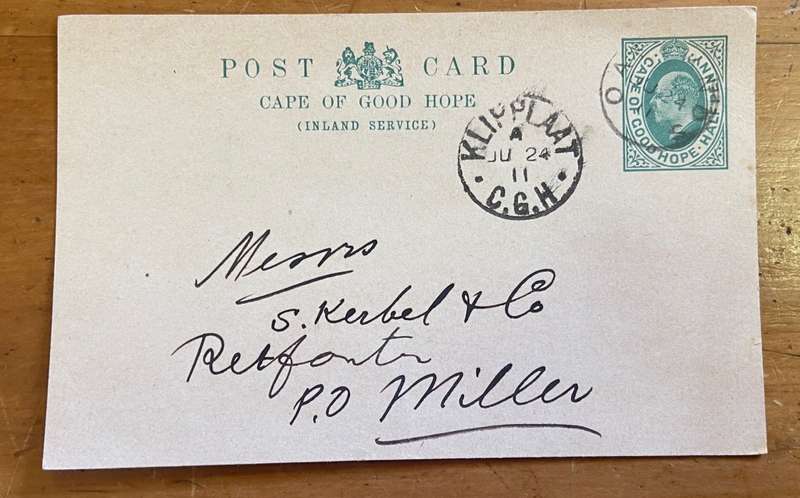 POST CARD
CAPE OF GOOD HOPE
(INLAND SERVICE)
KLIPPLAAT
A
JU 24
11
C.G.H
CAPE OF GOOD HOPE · HALF PENNY
Messrs
S. Kerbel & Co
Retfontein
P.O Miller